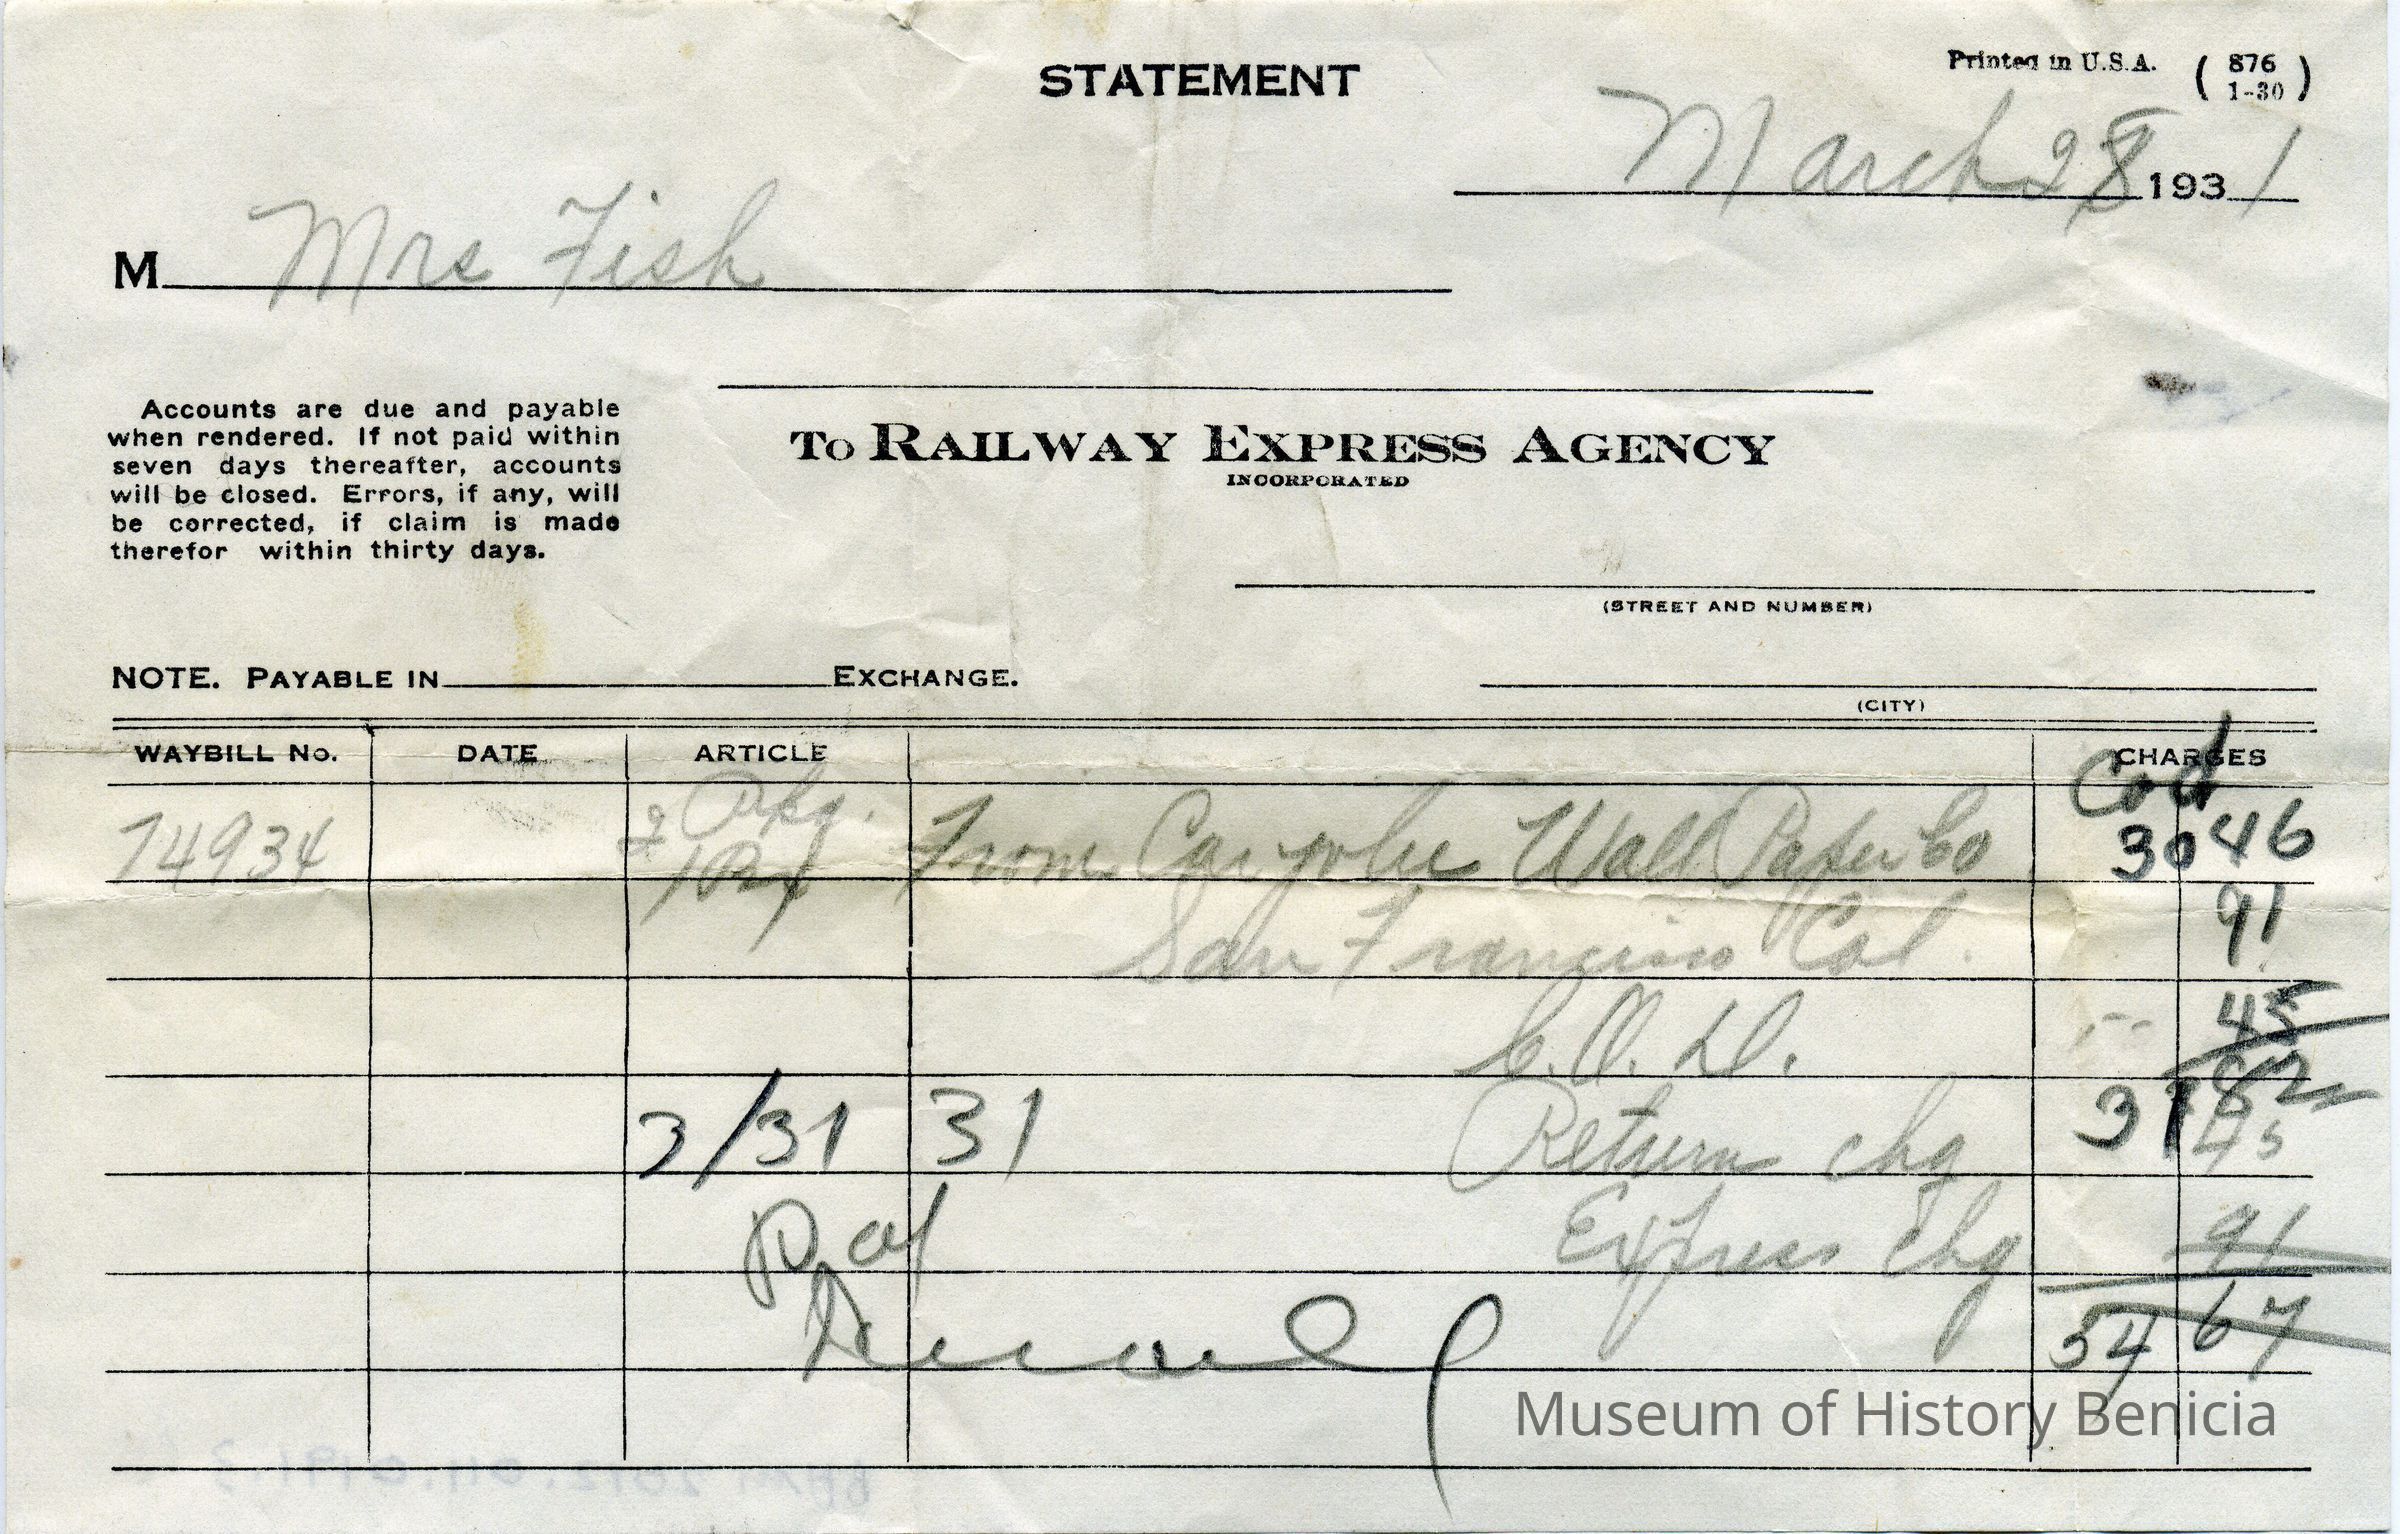 STATEMENT
Printed in U.S.A. ( 876 1-30 )
March 28 1931
M Mrs Fish
Accounts are due and payable
when rendered. If not paid within
seven days thereafter, accounts
will be closed. Errors, if any, will
be corrected, if claim is made
therefor within thirty days.
To RAILWAY EXPRESS AGENCY
INCORPORATED
(STREET AND NUMBER)
NOTE. PAYABLE IN EXCHANGE.
(CITY)
WAYBILL No. DATE ARTICLE CHARGES
Cod
74934 2 Pkg. From Wall Paper Co 30 46
San Francisco Cal. 91
C.O.D. 45
3/31 31 Return chg 31 82
45
Pd Express Chg 91
54 67
Museum of History Benicia